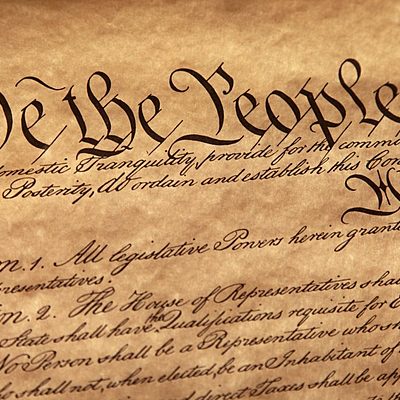 We the People
omestic Tranquility, provide for the commo
Posterity, do ordain and establish this Con
n. 1. All legislative Powers herein grant
resentatives.
n. 2. The House of Representatives shal
State shall have the Qualifications requisite for
No Person shall be a Representative who sh
ho shall not, when elected, be an Inhabitant of
and direct Taxes shall be app